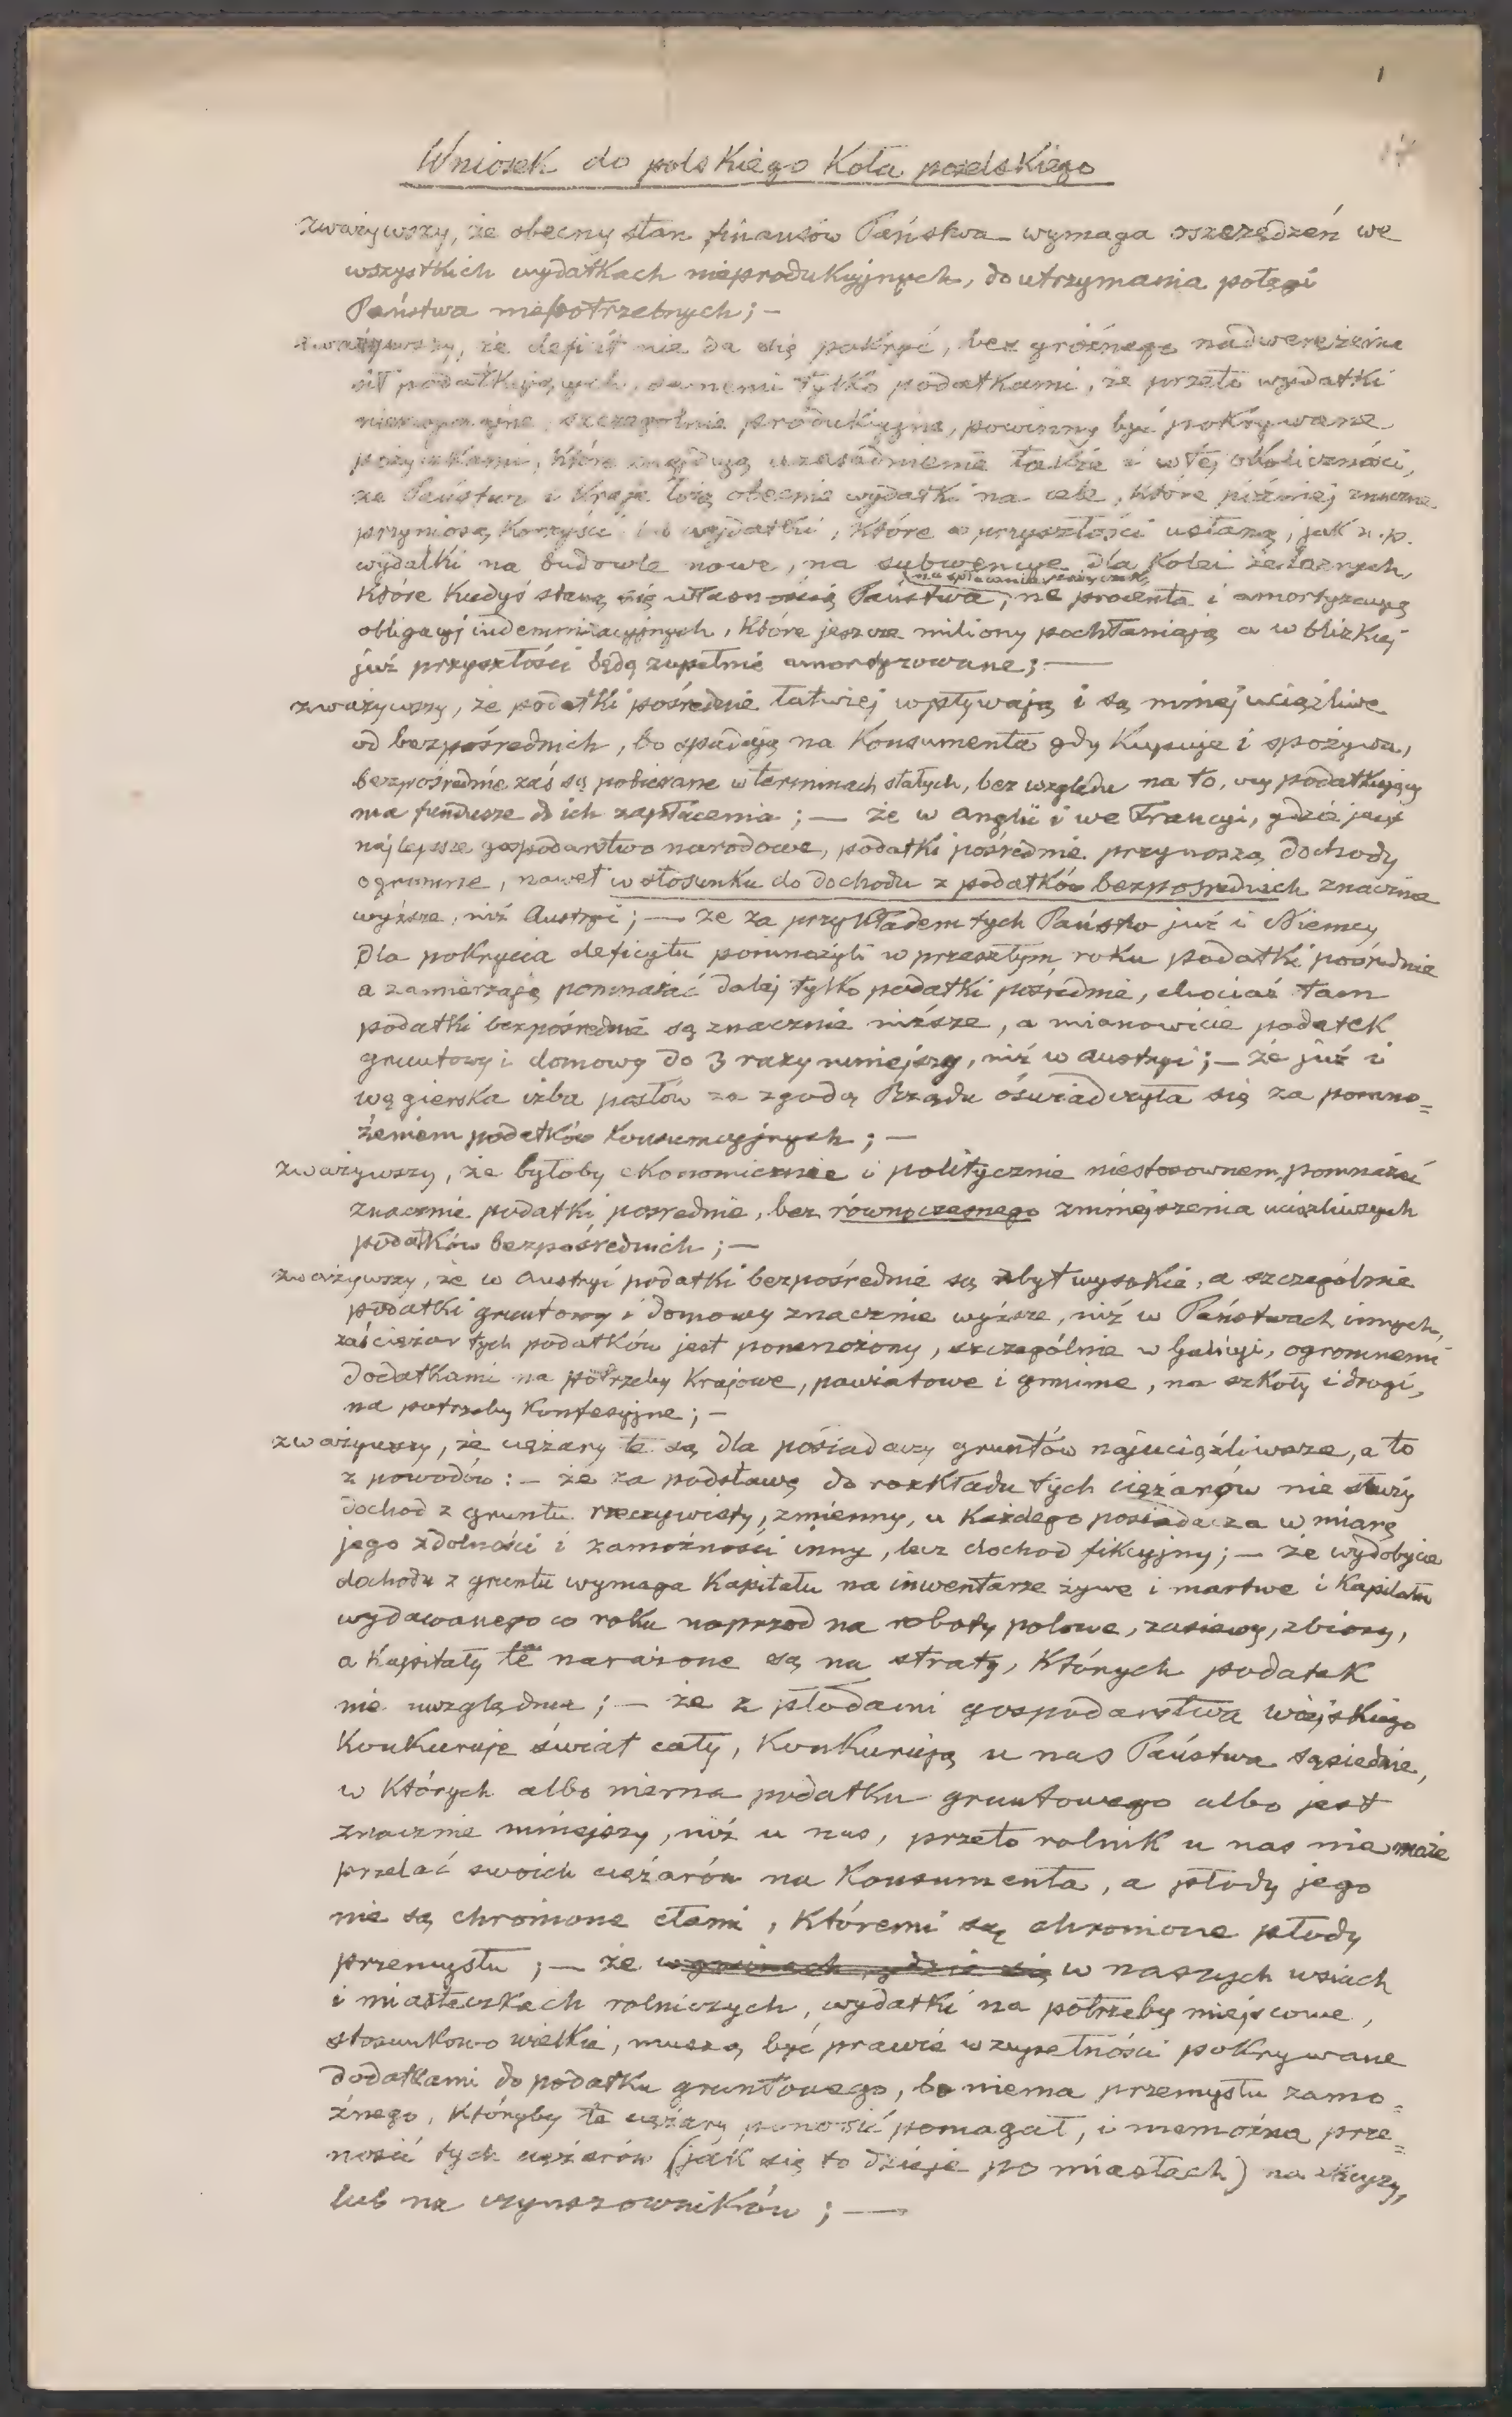 1
17
Wniosek do polskiego Koła poselskiego
zważywszy, że obecny stan finansów Państwa wymaga oszczędzeń we
wszystkich wydatkach nieprodukcyjnych, do utrzymania potęgi
Państwa niepotrzebnych; —
zważywszy, że deficit nie da się pokryć, bez groźnego nadwerężenia
sił podatkujących, samemi tylko podatkami, że przeto wydatki
szczególnie produkcyjne, powinny być pokrywane
pożyczkami, które znajdują uzasadnienie także i w tej okoliczności,
że Państwo i Kraje łożą obecnie wydatki na cele, które później znaczne
przyniosą Korzyści lub wydatki, które w przyszłości ustaną, jak n.p.
wydatki na budowle nowe, na subwencye dla Kolei żelaznych,
na spłacanie pożyczek,
które kiedyś staną się własnością Państwa, na procenta i amortyzacyą
obligacyj indemnizacyjnych, które jeszcze miliony pochłaniają a w blizkiej
już przyszłości będą zupełnie amortyzowane; —
zważywszy, że podatki pośrednie łatwiej wpływają i są mniej uciążliwe
od bezpośrednich, bo spadają na Konsumenta gdy Kupuje i spożywa,
bezpośrednie zaś są pobierane w terminach stałych, bez względu na to, czy podatkujący
ma fundusze do ich zapłacenia; — że w Anglii i we Francyi, gdzie jest
najlepsze gospodarstwo narodowe, podatki pośrednie przynoszą dochody
ogromne, nawet w stosunku do dochodu z podatków bezpośrednich znacznie
wyższe, niż Austryi; — że za przykładem tych Państw już i Niemcy
dla pokrycia deficytu pomnożyli w przeszłym roku podatki pośrednie
a zamierzają pomnażać dalej tylko podatki pośrednie, chociaż tam
podatki bezpośrednie są znacznie niższe, a mianowicie podatek
gruntowy i domowy do 3 razy mniejszy, niż w Austryi; — że już i
węgierska izba posłów za zgodą Rządu oświadczyła się za pomno=
żeniem podatków Konsumcyjnych; —
zważywszy, że byłoby ekonomicznie i politycznie niestosownem, pomnażać
znacznie podatki pośrednie, bez równoczesnego zmniejszenia uciążliwych
podatków bezpośrednich; —
zważywszy, że w Austryi podatki bezpośrednie są zbyt wysokie, a szczególnie
podatki gruntowy i domowy znacznie wyższe, niż w Państwach innych,
zaś ciężar tych podatków jest pomnożony, szczególnie w Galicyi, ogromnemi
dodatkami na potrzeby Krajowe, powiatowe i gminne, na szkoły i drogi,
na potrzeby Konfesyjne; —
zważywszy, że ciężary te są dla posiadaczy gruntów najuciążliwsze, a to
z powodów: — że za podstawę do rozkładu tych ciężarów nie służy
dochod z gruntu rzeczywisty, zmienny, u Każdego posiadacza w miarę
jego zdolności i zamożności inny, lecz dochod fikcyjny; — że wydobycie
dochodu z gruntu wymaga Kapitału na inwentarze żywe i martwe i Kapitału
wydawanego co roku naprzod na roboty polowe, zasiewy, zbiory,
a Kapitały te narażone są na straty, Których podatek
nie uwzględnia; — że z płodami gospodarstwa wiejskiego
Konkuruje świat cały, Konkurują u nas Państwa sąsiednie,
w Których albo niema podatku gruntowego albo jest
znacznie mniejszy, niż u nas, przeto rolnik u nas nie może
przelać swoich ciężarów na Konsumenta, a płody jego
nie są chronione cłami, Któremi są chronione płody
przemysłu; — że w gminach gdzie są w naszych wsiach
i miasteczkach rolniczych, wydatki na potrzeby miejscowe,
stosunkowo wielkie, muszą być prawie w zupełności pokrywane
dodatkami do podatku gruntowego, bo niema przemysłu zamo=
żnego, Któryby te ciężary ponosić pomagał, i niemożna prze=
nosić tych ciężarów (jak się to dzieje po miastach) na
lub na czynszowników; —